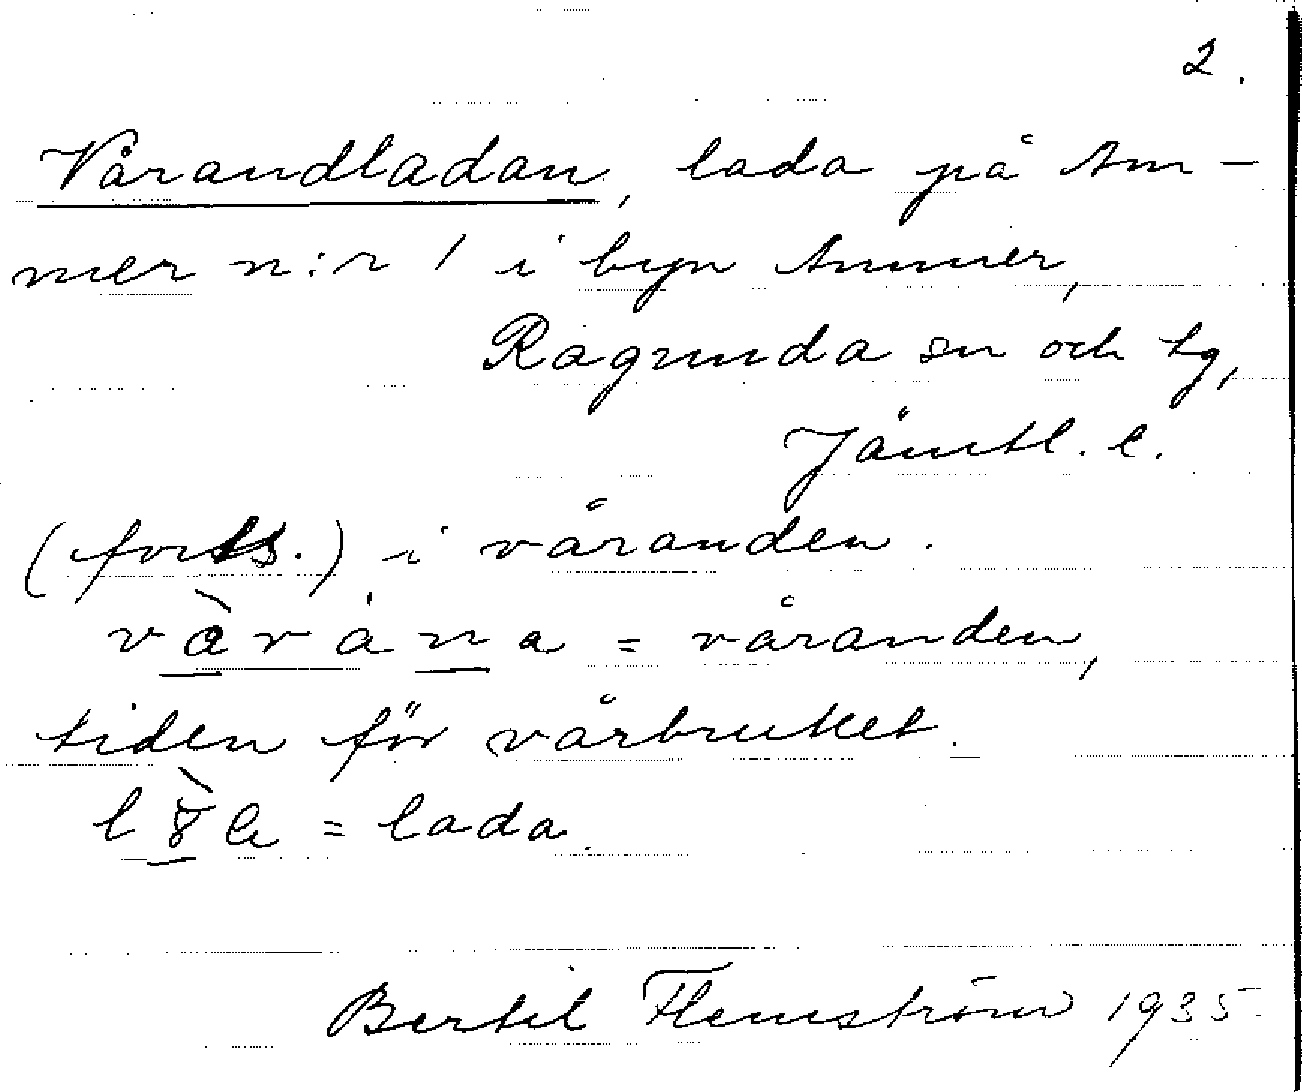 2.
Vårandladan, lada på Am-
mer n:r 1 i byn Ammer,
Ragunda sn och tg,
Jämtl. l.
(forts.) i våranden.
= våranden,
tiden för vårbruket.
= lada.
Bertil Flemström 1935